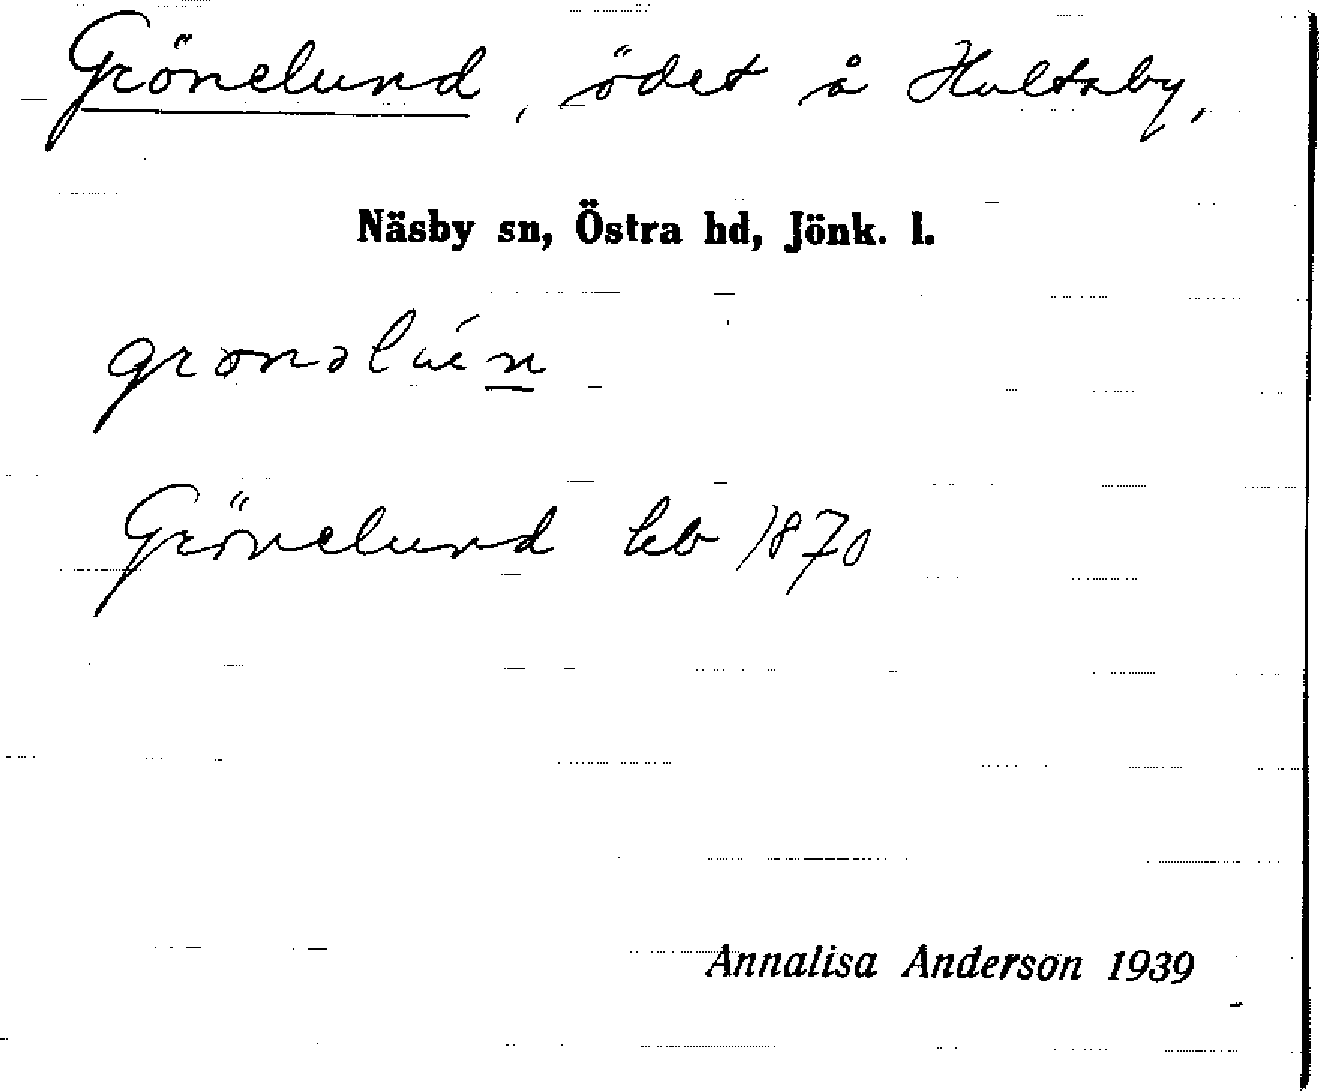 Grönelund, ödet å Hultaby,
Näsby sn, Östra hd, Jönk. l.
Grönelund kb 1870
Annalisa Anderson 1939